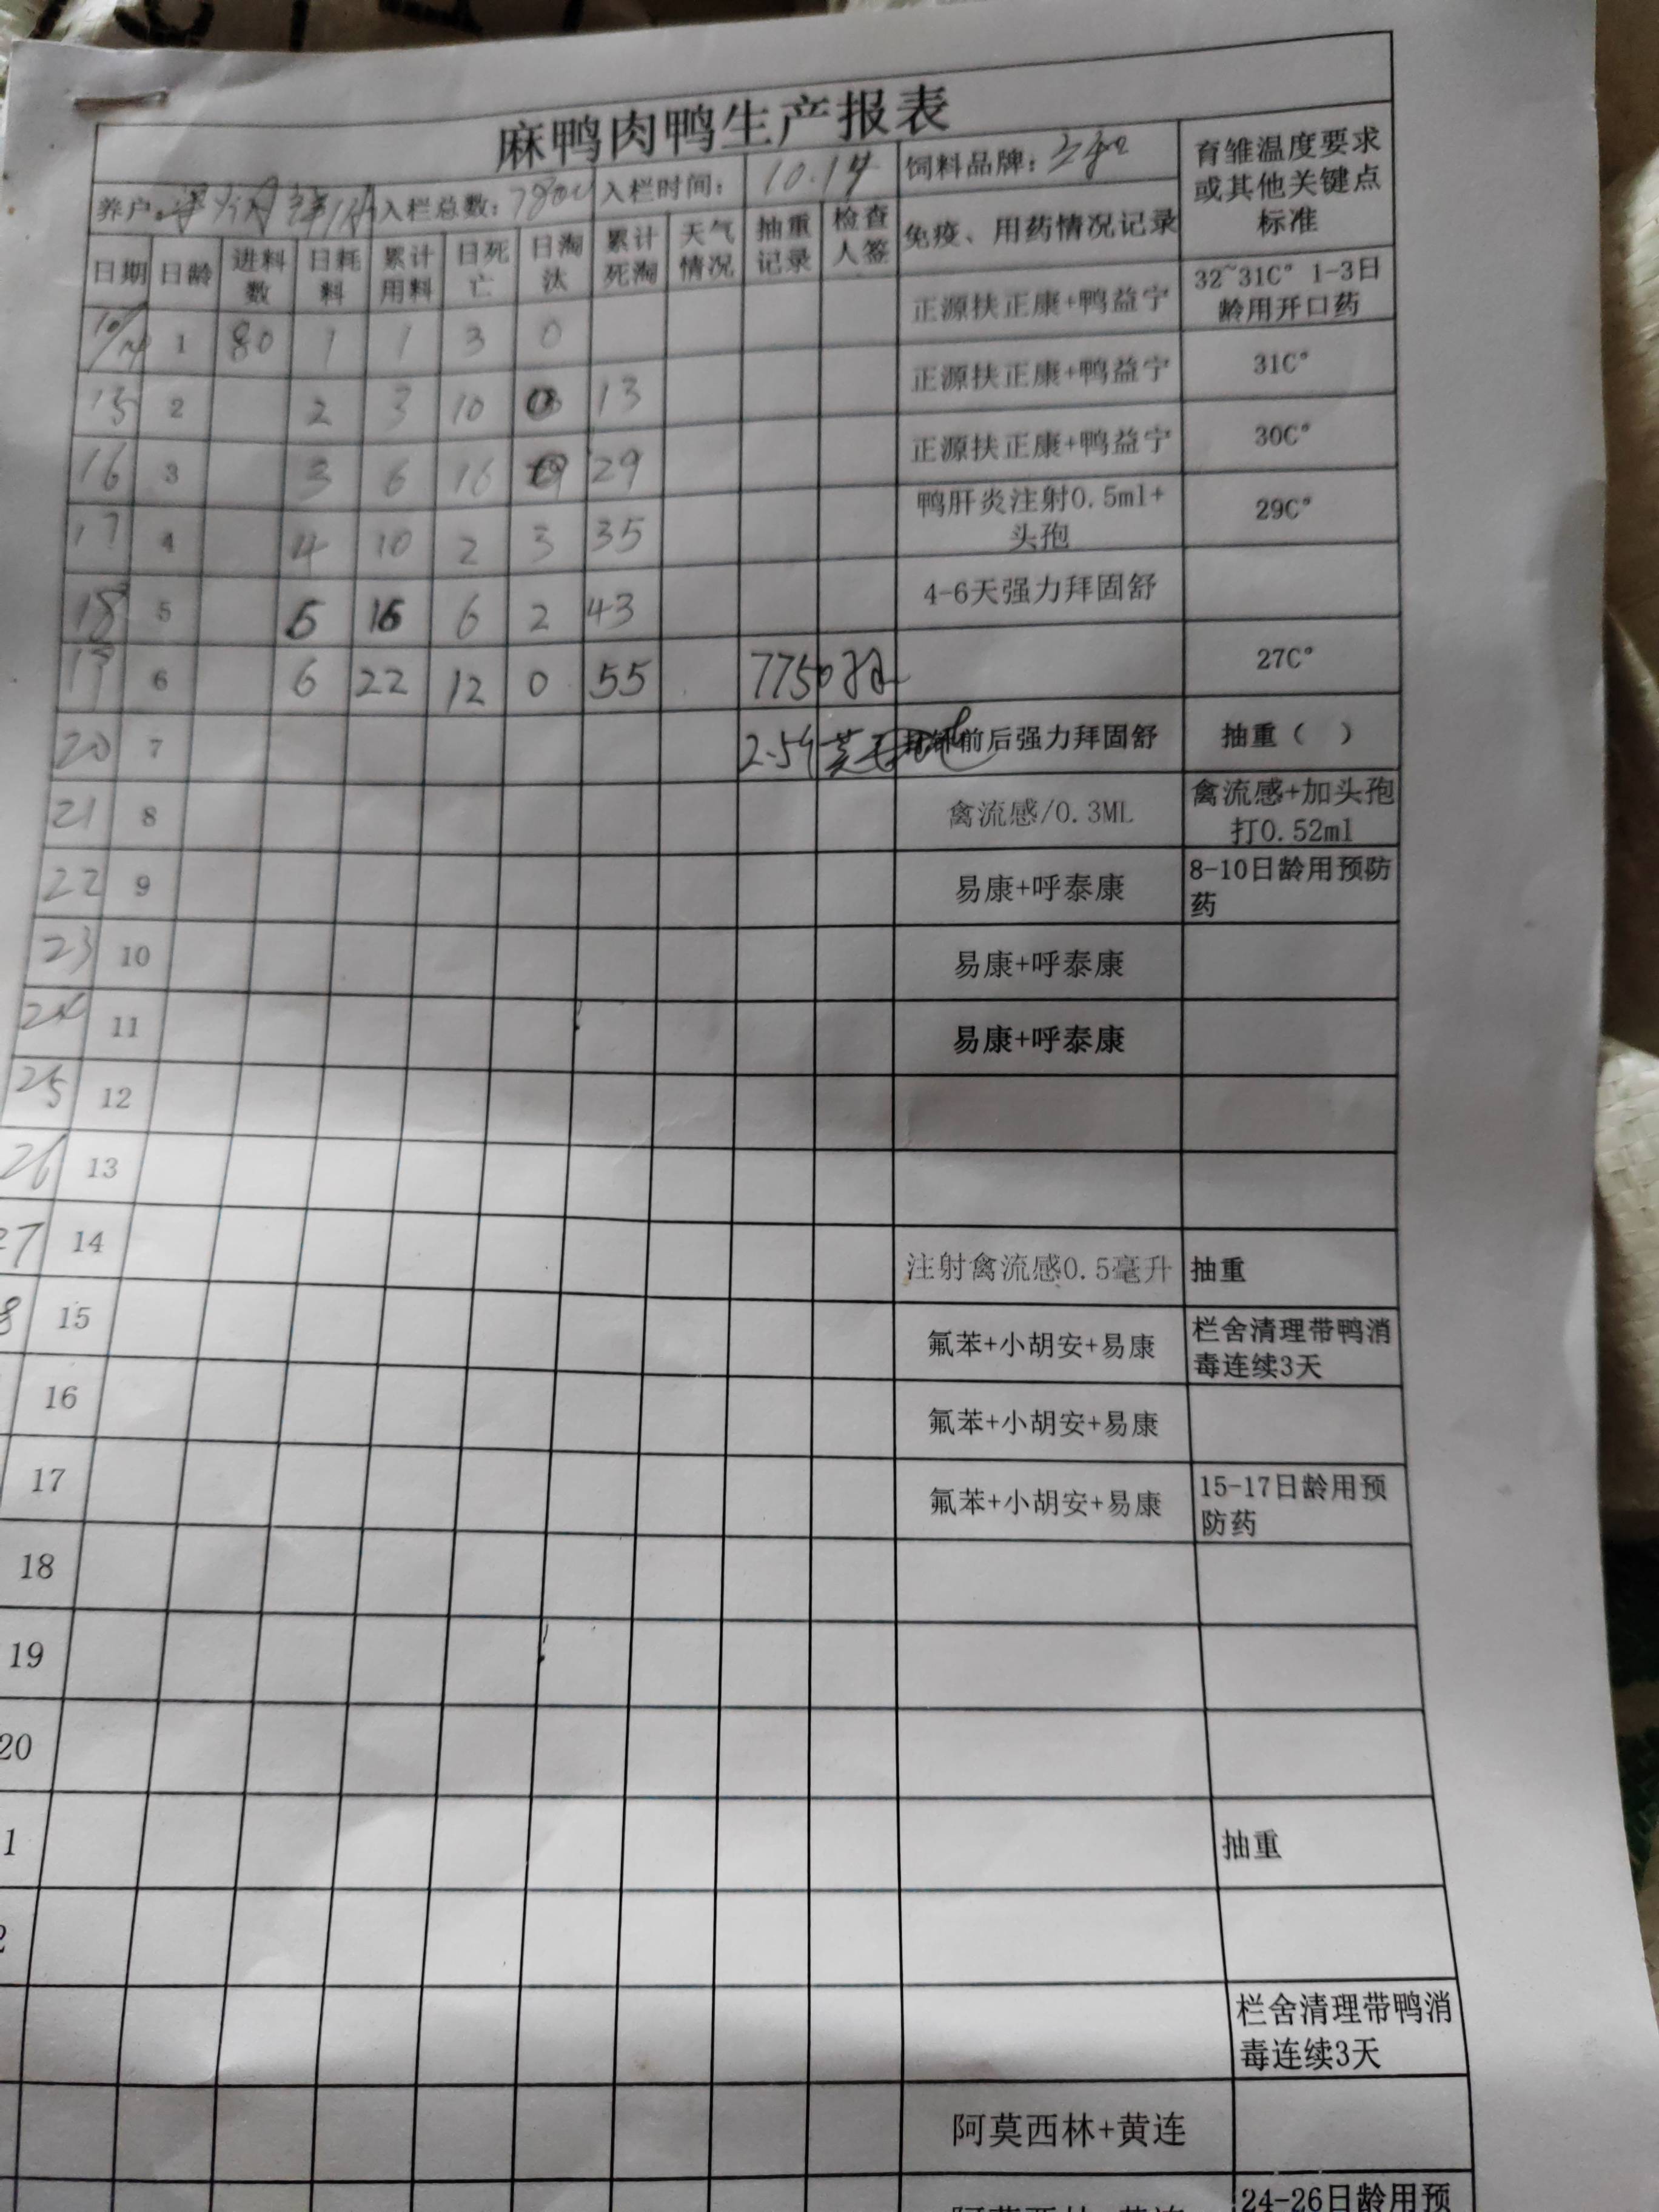 麻鸭肉鸭生产报表
养户: 入栏总数: 7800 入栏时间: 10.14 饲料品牌: 育雏温度要求或其他关键点标准
日期 日龄 进料数 日耗料 累计用料 日死亡 日淘汰 累计死淘 天气情况 抽重记录 检查人签 免疫、用药情况记录
10/14 1 80 1 1 3 0 正源扶正康+鸭益宁 32~31C° 1-3日龄用开口药
15 2 2 3 10 13 正源扶正康+鸭益宁 31C°
16 3 3 6 16 29 正源扶正康+鸭益宁 30C°
17 4 4 10 2 3 35 鸭肝炎注射0.5ml+头孢 29C°
18 5 5 16 6 2 43 4-6天强力拜固舒
19 6 6 22 12 0 55 7750 27C°
20 7 2.5 前后强力拜固舒 抽重（ ）
21 8 禽流感/0.3ML 禽流感+加头孢打0.52ml
22 9 易康+呼泰康 8-10日龄用预防药
23 10 易康+呼泰康
24 11 易康+呼泰康
25 12
26 13
27 14 注射禽流感0.5毫升 抽重
8 15 氟苯+小胡安+易康 栏舍清理带鸭消毒连续3天
16 氟苯+小胡安+易康
17 氟苯+小胡安+易康 15-17日龄用预防药
18
19
20
1 抽重
2
栏舍清理带鸭消毒连续3天
阿莫西林+黄连
24-26日龄用预